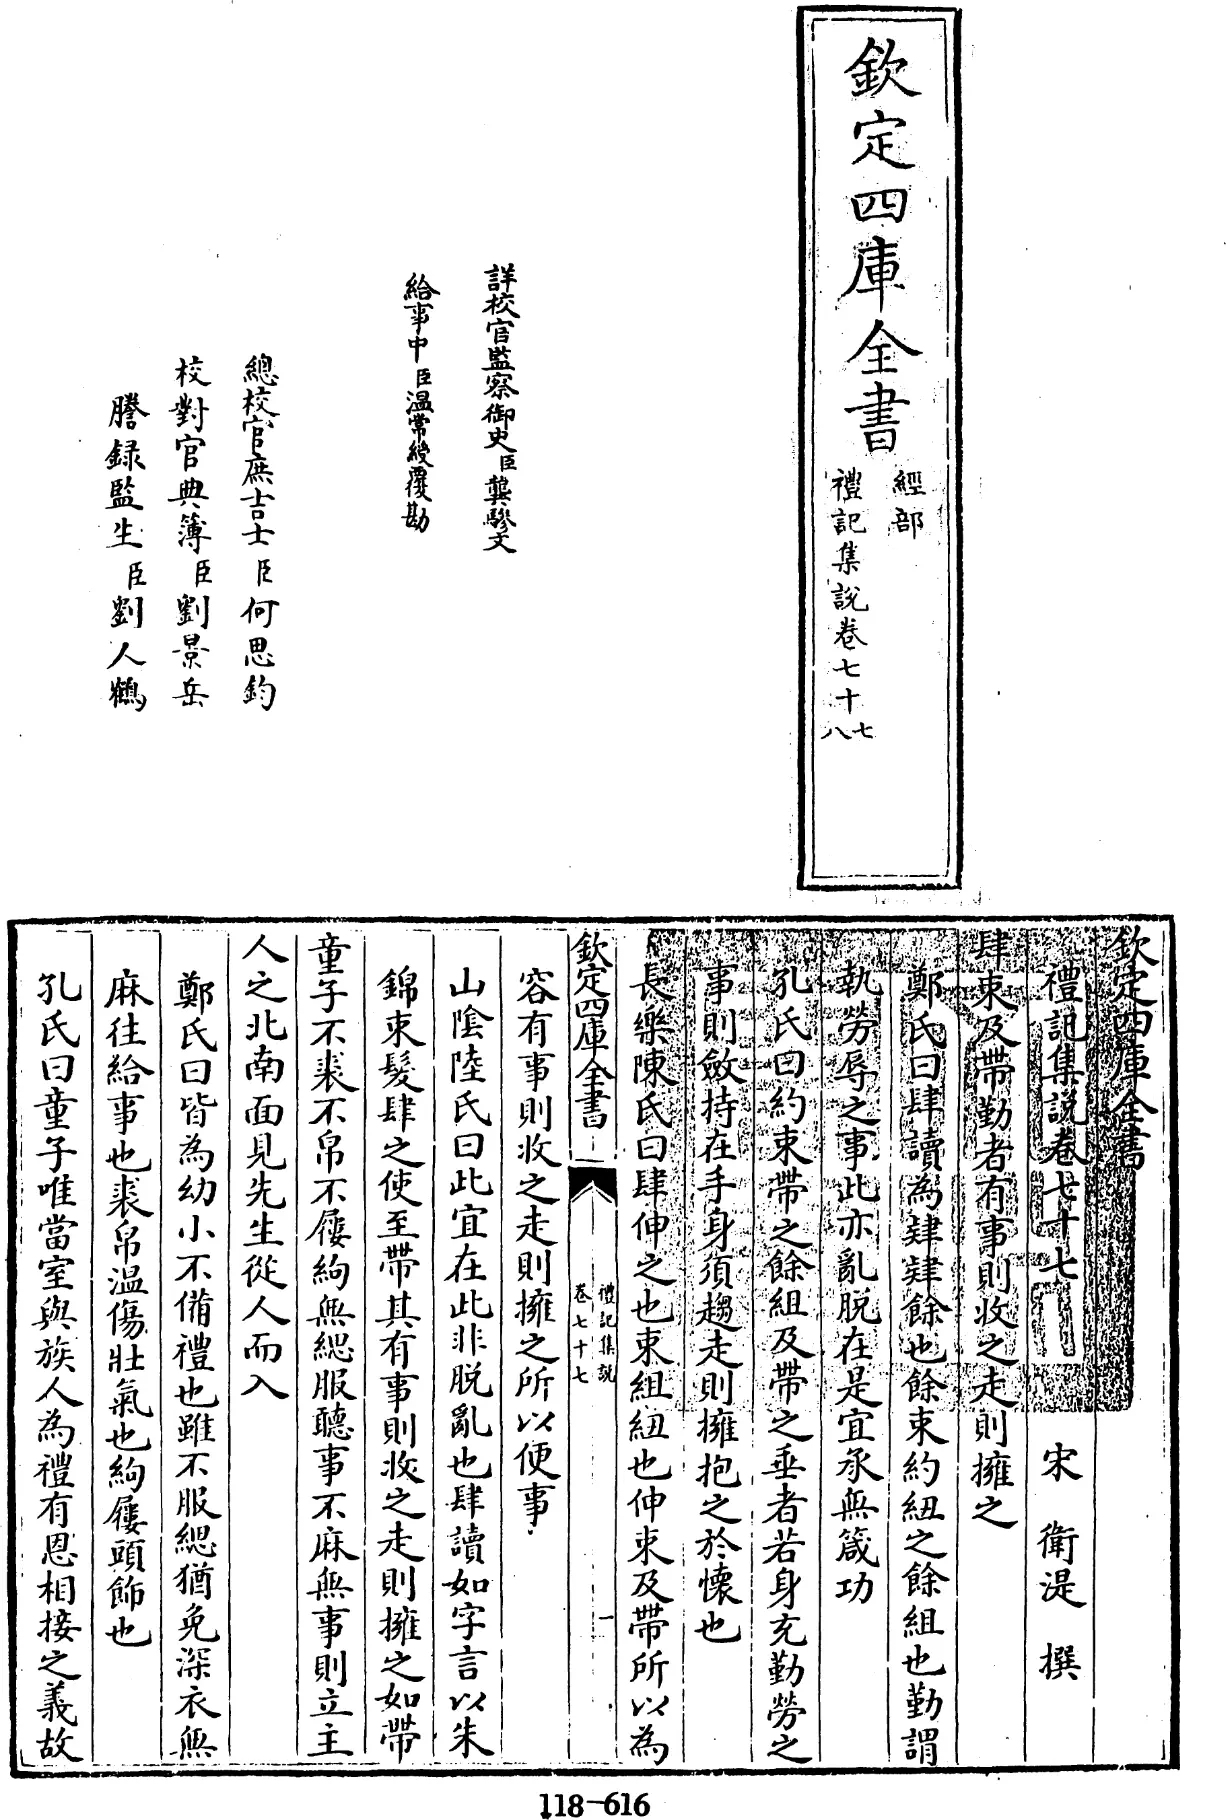 欽定四庫全書
經部
禮記集說卷七十七
八
詳校官監察御史臣龔驂文
給事中臣溫常綬覆勘
總校官庶吉士臣何思鈞
校對官典簿臣劉景岳
謄錄監生臣劉人鶴
欽定四庫全書
禮記集說卷七十七
宋 衛湜 撰
肆束及帶勤者有事則收之走則擁之
鄭氏曰肆讀為肄肄餘也餘束約紐之餘組也勤謂
執勞辱之事此亦亂脫在是宜承無箴功
孔氏曰約束帶之餘組及帶之垂者若身充勤勞之
事則斂持在手身須趨走則擁抱之於懷也
長樂陳氏曰肆伸之也束組紐也伸束及帶所以為
欽定四庫全書
禮記集說
卷七十七
一
容有事則收之走則擁之所以便事
山陰陸氏曰此宜在此非脫亂也肆讀如字言以朱
錦束髮肆之使至帶其有事則收之走則擁之如帶
童子不裘不帛不屨絇無緦服聽事不麻無事則立主
人之北南面見先生從人而入
鄭氏曰皆為幼小不備禮也雖不服緦猶免深衣無
麻往給事也裘帛溫傷壯氣也絇屨頭飾也
孔氏曰童子唯當室與族人為禮有恩相接之義故
118-616